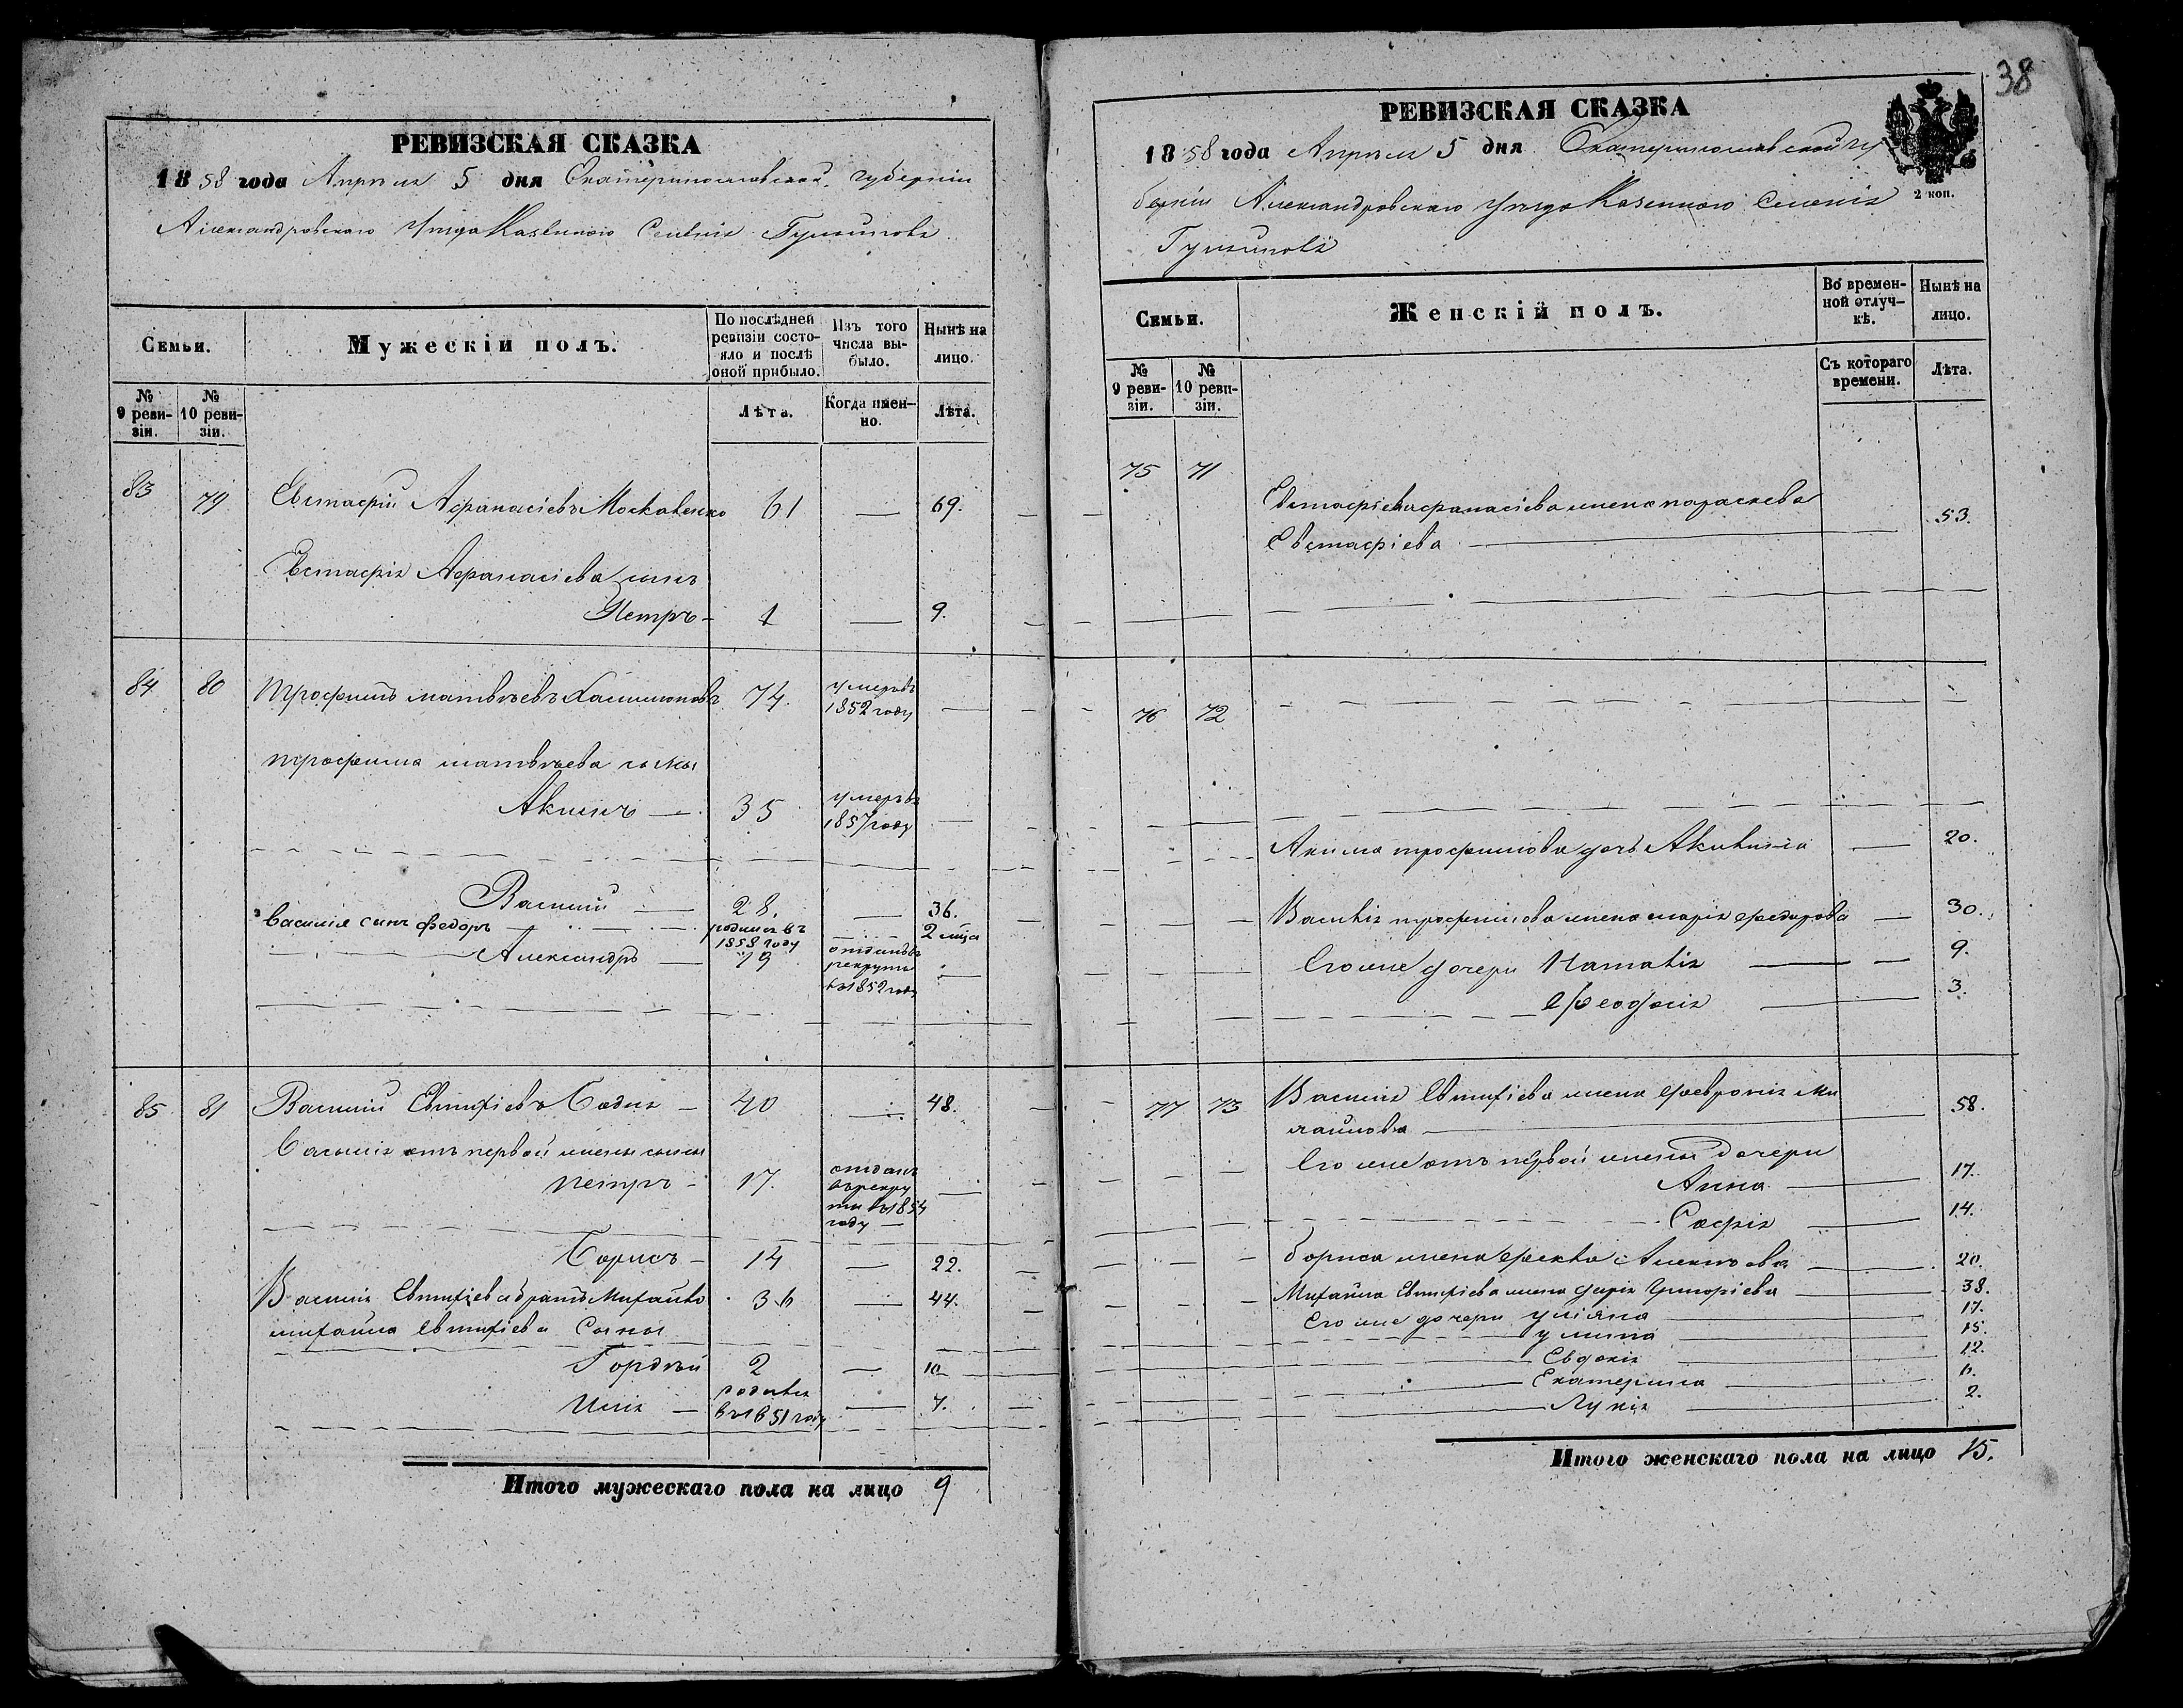 РЕВИЗСКАЯ СКАЗКА
1858 года Апреля 5 дня Екатеринославской губерніи
Александровскаго Уезда Казеннаго Селенія
Семьи.
Мужескій полъ.
По послѣдней ревизіи состояло и послѣ оной прибыло.
Изъ того числа выбыло.
Нынѣ на лицо.
№ 9 ревизіи.
№ 10 ревизіи.
Лѣта.
Когда имен-но.
Лѣта.
83 79 Евстафій Афанасіевъ Московенко 61 — 69.
Евстафія Афанасіева сынъ
Петръ 1 — 9.
84 80 Трофимъ Матвѣевъ 74. умеръ въ 1852 году —
Трофима Матвѣева сыны
Акимъ — 35 умеръ въ 1857 году —
Василій — 28. — 36.
Василія сынъ Федоръ родился въ 1858 году 2 мѣца
Александръ — 19 отданъ въ рекруты въ 1852 году —
85 81 Василій Евтифіевъ Бодня — 40 — 48.
Василія отъ первой жены сыны
Петръ — 17. отданъ въ рекруты въ 1854 году —
Борисъ — 14 — 22.
Василія Евтифіева братъ Михайло 36 — 44.
Михайла Евтифіева Сыны
Гордѣй 2 — 10
Илія — родився въ 1851 году — 7.
Итого мужескаго пола на лицо 9
38
РЕВИЗСКАЯ СКАЗКА
2 коп.
1858 года Апреля 5 дня Екатеринославской гу
берніи Александровскаго Уезда Казеннаго Селенія
Семьи.
Женскій полъ.
Во времен-ной отлуч-кѣ.
Нынѣ на лицо.
№ 9 ревизіи.
№ 10 ревизіи.
Съ котораго времени.
Лѣта.
75 71 Евстафіева Афанасіева жена Параскева
Евстафіева — 53.
76 72
Акима Трофимова дочь Акилина — 20.
Василія Трофимова жена Марія Федорова — 30.
Его же дочери Наталія — 9.
Феодосія — 3.
77 73 Василія Евтифіева жена Февронія Ми
хайлова — 58.
Его же отъ первой жены дочери
Анна — 17.
Софія — 14.
Бориса жена Фекла Алексѣева — 20.
Михайла Евтифіева жена Дарія Григоріева — 38.
Его же дочери Уліяна — 17.
— 15.
Евдокія — 12.
Екатерина — 6.
Лукія — 2.
Итого женскаго пола на лицо 15.